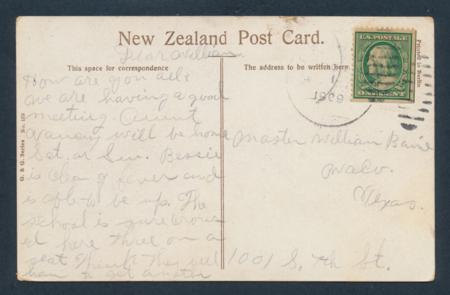 New Zealand Post Card.
Dear William
This space for correspondence
How are you all?
we are having a good
meeting. Aunt
will be home
Sat. or Sun. Bessie
is clear of fever and
is able to be up. The
school is sure crowd
ed here three on a
seat think they will
have to get another
G. & G. Series No. 109
The address to be written here
Printed in Berlin
U.S. POSTAGE
Master William
Waco.
Texas.
1001 S. 7th St.